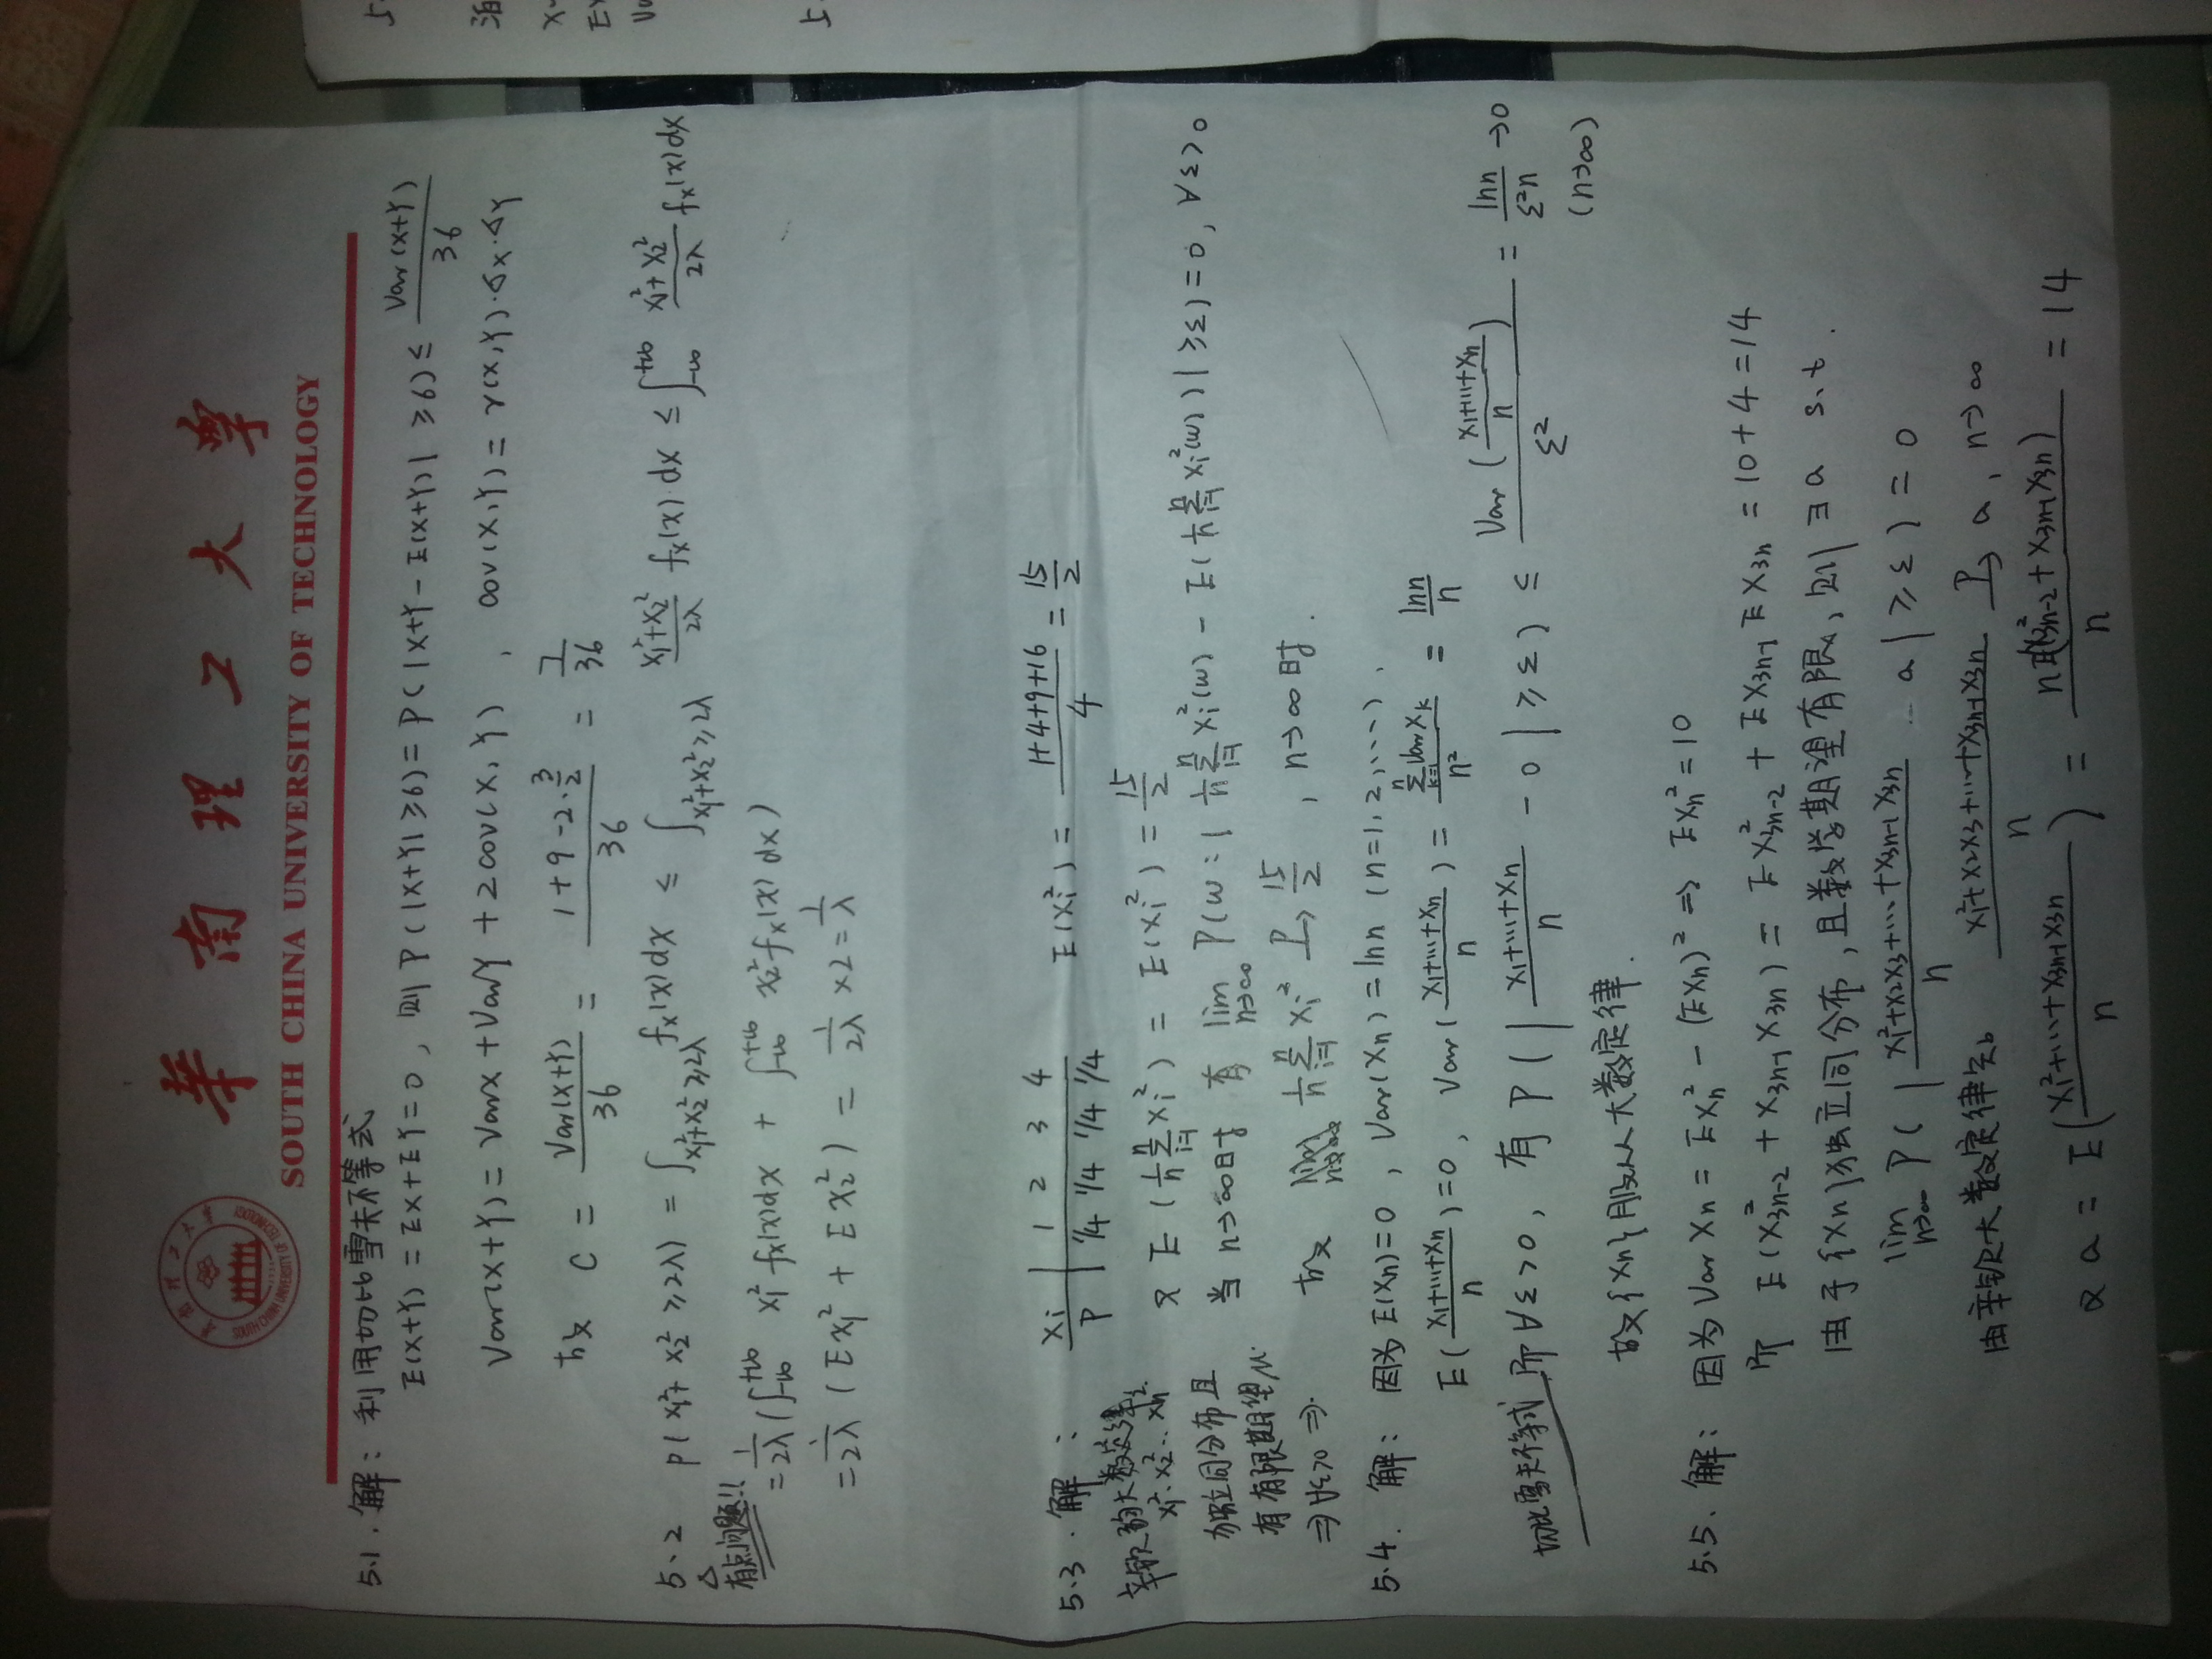 華南理工大學
SOUTH CHINA UNIVERSITY OF TECHNOLOGY
5.1. 解: 利用切比雪夫不等式
E(X+Y) = EX+EY=0, 则 P(|X+Y|≥6) = P(|X+Y-E(X+Y)|≥6) ≤ Var(X+Y)/36
Var(X+Y) = VarX + VarY + 2cov(X,Y), cov(X,Y) = γ(X,Y)·σx·σY
故 C = Var(X+Y)/36 = (1+9-2·3/2)/36 = 7/36
5.2 P(x₁²+x₂²≥2λ) = ∫_{x₁²+x₂²≥2λ} fx(x)dx ≤ ∫_{x₁²+x₂²≥2λ} (x₁²+x₂²)/2λ fx(x)·dx ≤ ∫_{-∞}^{+∞} (x₁²+x₂²)/2λ fx(x)dx
△
有点问题!!
= 1/2λ (∫_{-∞}^{+∞} x₁² fx(x)dx + ∫_{-∞}^{+∞} x₂² fx(x)dx)
= 1/2λ (Ex₁² + Ex₂²) = 1/2λ ×2 = 1/λ
5.3. 解: Xi | 1 2 3 4 E(Xi²) = (1+4+9+16)/4 = 15/2
P | 1/4 1/4 1/4 1/4
辛钦的大数定律
x₁², x₂²… xn²
独立同分布且
有有限期望μ.
⇒∀ε>0 ⇒.
又 E(1/n Σ_{i=1}^{n} Xi²) = E(Xi²) = 15/2
当 n→∞时 有 lim_{n→∞} P(ω: | 1/n Σ_{i=1}^{n} Xi²(ω) - E(1/n Σ_{i=1}^{n} Xi²(ω))|≥ε)=0, ∀ε>0
故 1/n Σ_{i=1}^{n} Xi² P→ 15/2, n→∞时.
5.4. 解: 因为E(Xn)=0, Var(Xn)=lnn (n=1,2,…).
E((X1+…+Xn)/n)=0, Var((X1+…+Xn)/n) = (Σ_{k=1}^{n} VarXk)/n² = lnn/n
切比雪夫不等式 所∀ε>0, 有 P(|(X1+…+Xn)/n - 0|≥ε) ≤ Var((X1+…+Xn)/n)/ε² = lnn/ε²n →0
(n→∞)
故{Xn}服从大数定律.
5.5. 解: 因为Var Xn = EXn² - (EXn)² ⇒ EXn²=10
所 E(X²3n-2 + X3n-1 X3n) = EX²3n-2 + EX3n-1 EX3n = 10+4=14
由于{Xn}独立同分布, 且数学期望有限, 则 ∃a s.t.
lim_{n→∞} P(|(X1²+X2X3+…+X3n-1 X3n)/n - a|≥ε) = 0
由辛钦大数定律知 (X1²+X2X3+…+X3n-1X3n)/n P→ a, n→∞
又 a = E((X1²+…+X3n-1X3n)/n) = nE(X²3n-2 + X3n-1X3n)/n = 14